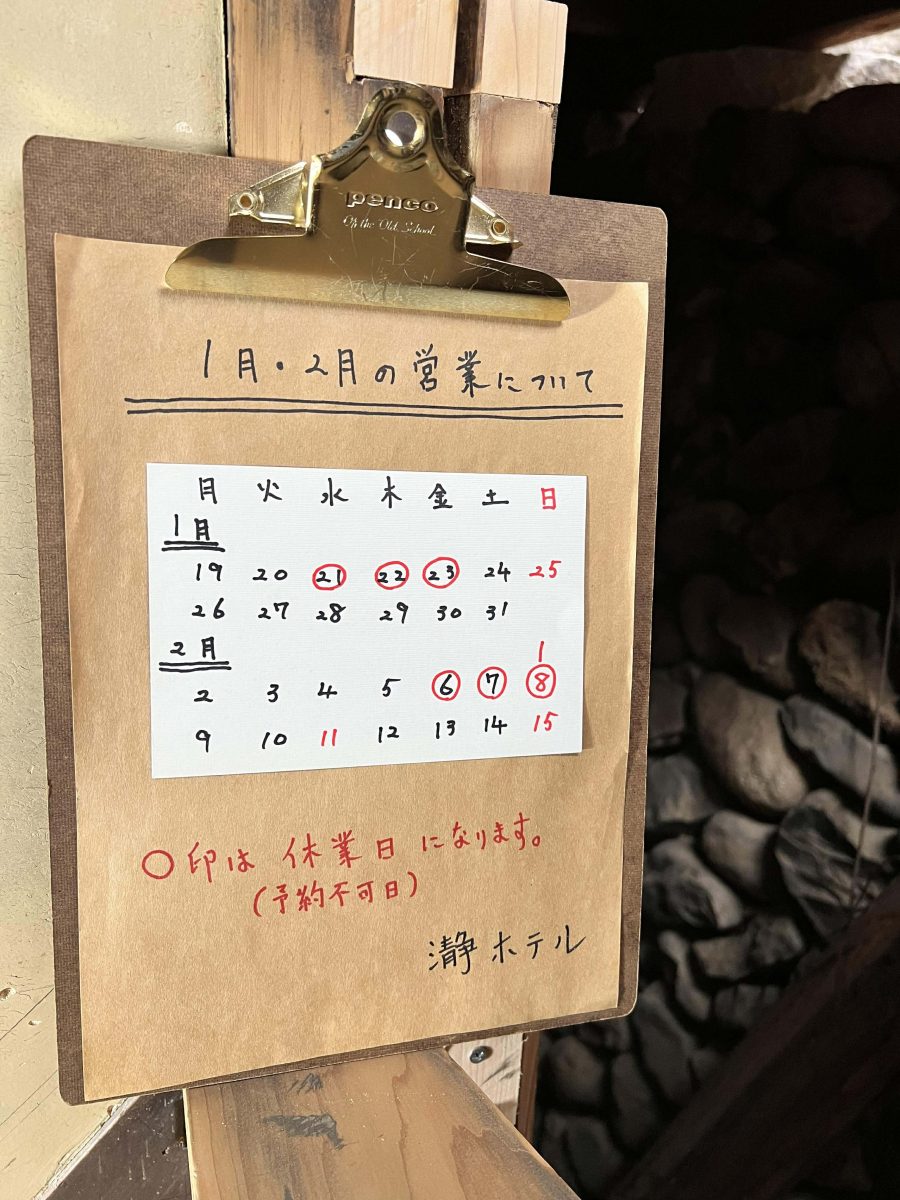 penco
Of the Old School
1月・2月の営業について
月 火 水 木 金 土 日
1月
19 20 21 22 23 24 25
26 27 28 29 30 31
1
2月
2 3 4 5 6 7 8
9 10 11 12 13 14 15
○印は 休業日 になります。
(予約不可日)
瀞ホテル